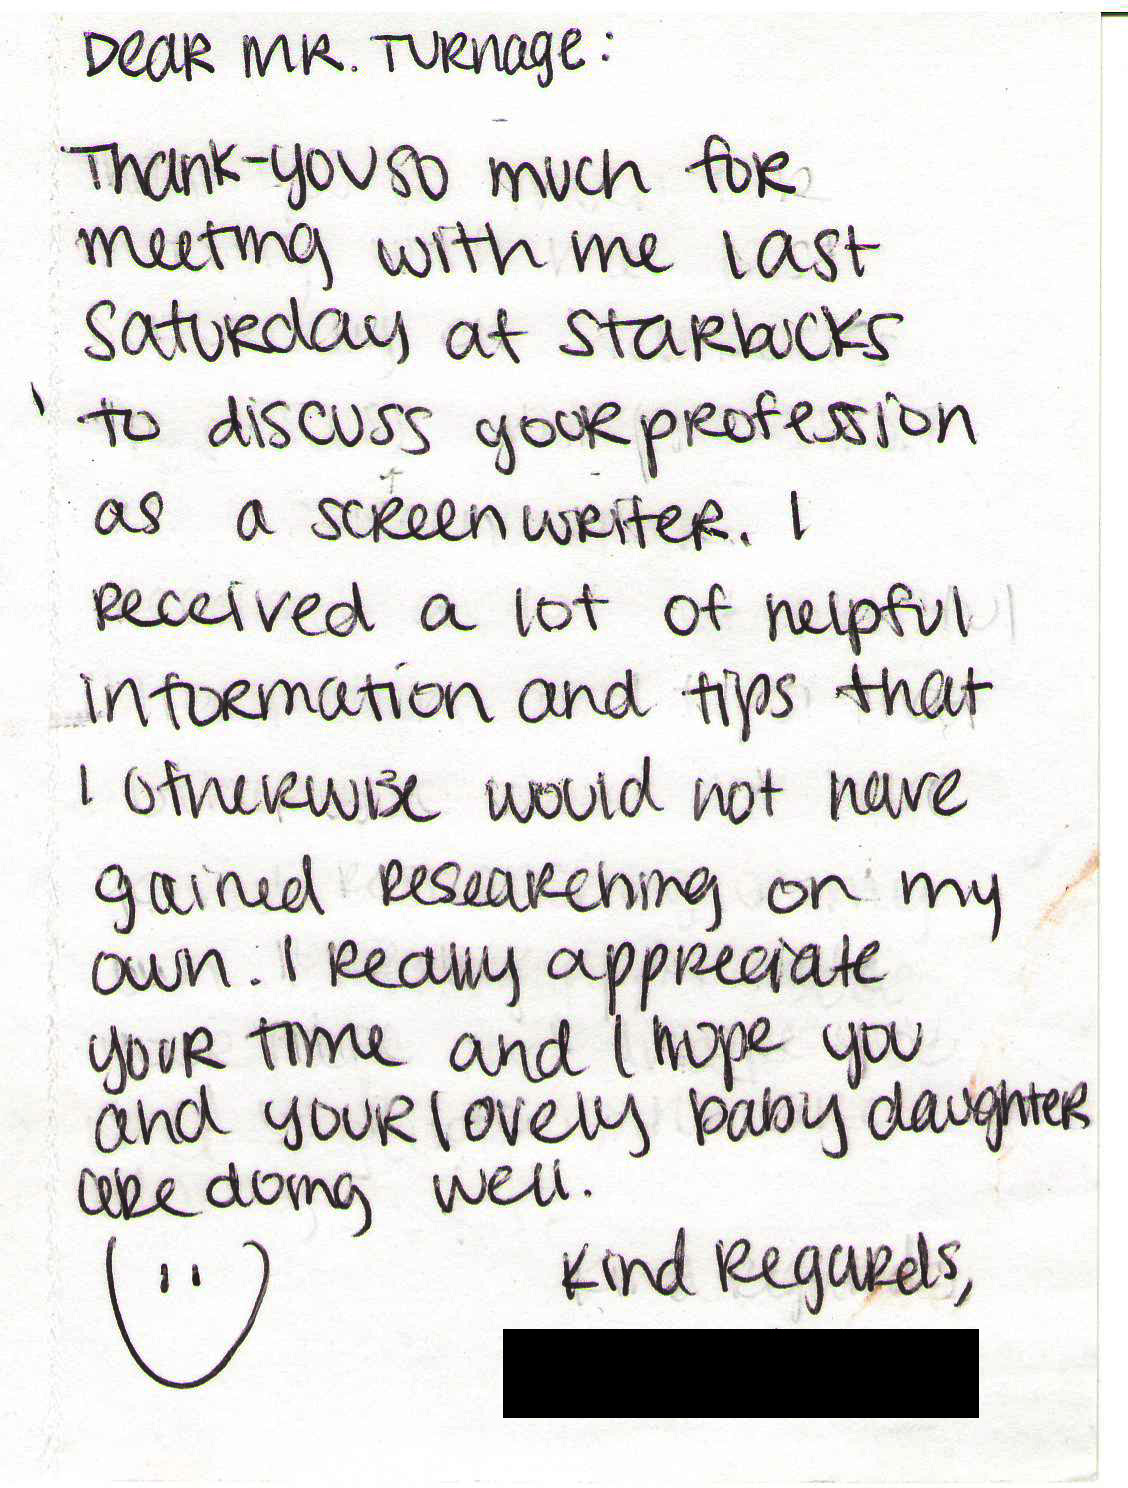 Dear Mr. Turnage:
Thank-you so much for
meeting with me last
Saturday at Starbucks
to discuss your profession
as a screenwriter. I
received a lot of helpful
information and tips that
I otherwise would not have
gained researching on my
own. I really appreciate
your time and I hope you
and your lovely baby daughter
are doing well.
Kind Regards,